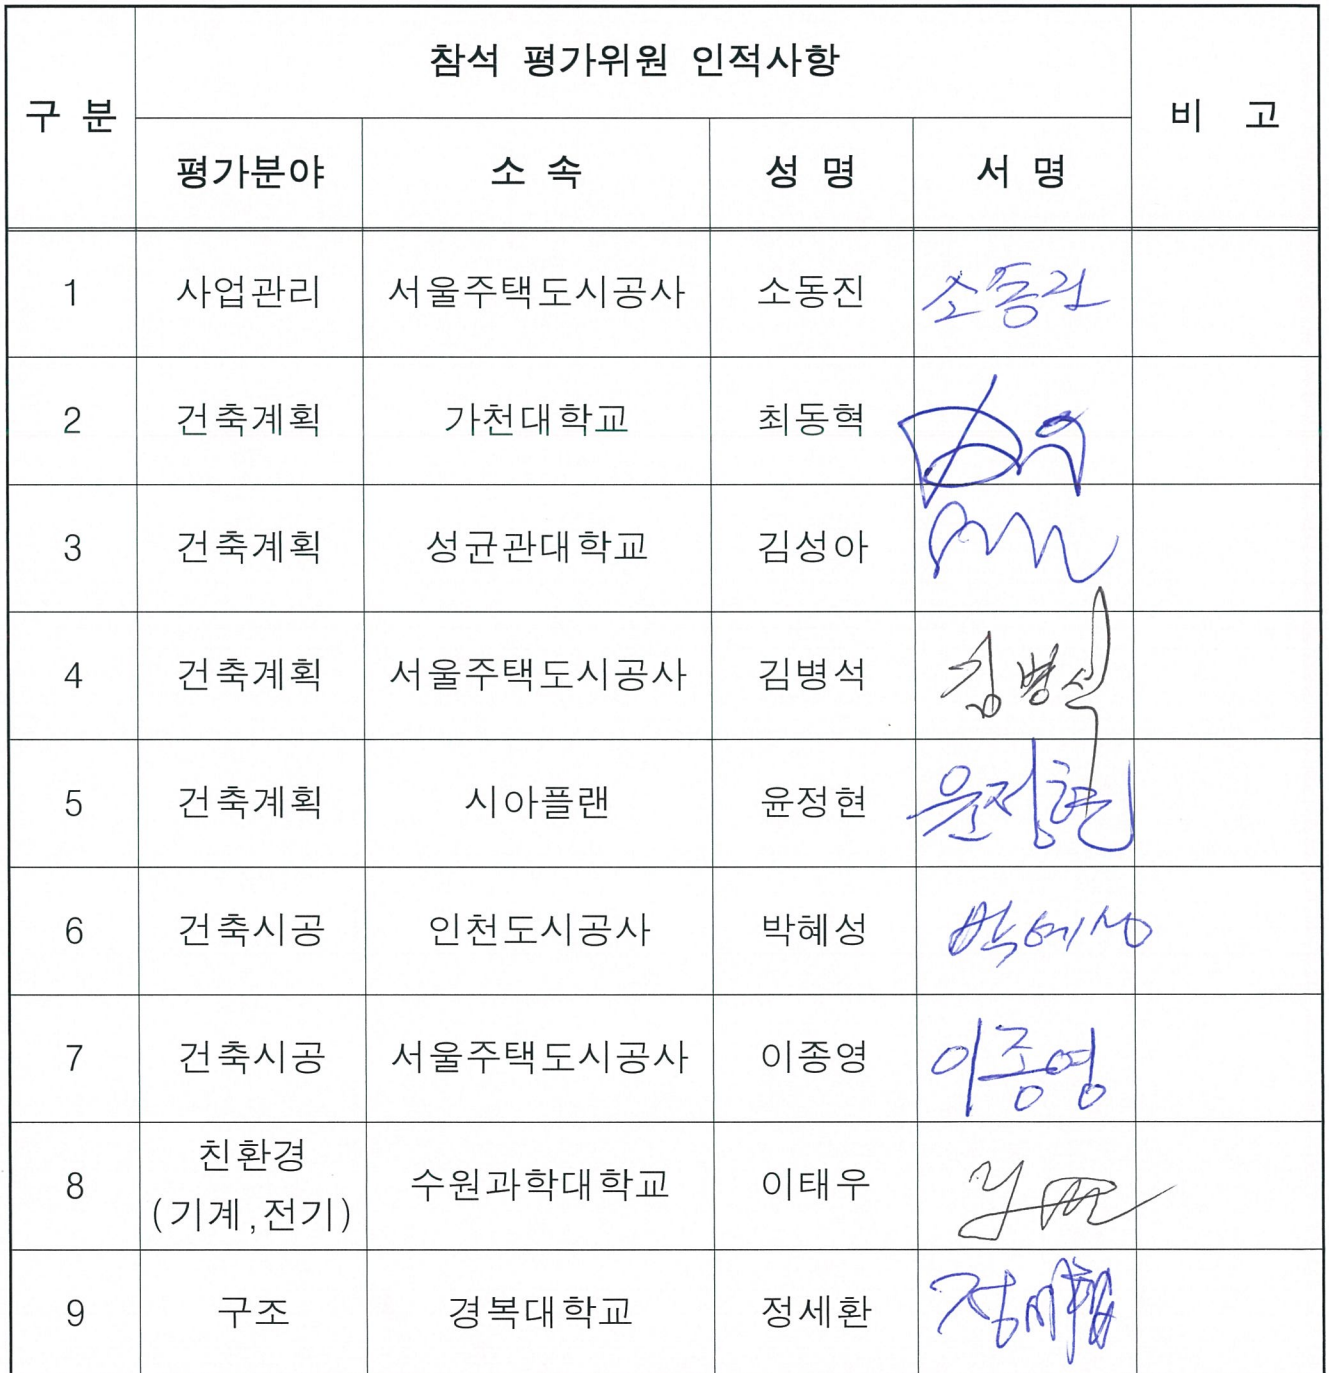 참석 평가위원 인적사항
구 분
비 고
평가분야 소 속 성 명 서 명
1 사업관리 서울주택도시공사 소동진 소동진
2 건축계획 가천대학교 최동혁
3 건축계획 성균관대학교 김성아
4 건축계획 서울주택도시공사 김병석 김병석
5 건축계획 시아플랜 윤정현 윤정현
6 건축시공 인천도시공사 박혜성 박혜성
7 건축시공 서울주택도시공사 이종영 이종영
친환경
8 수원과학대학교 이태우
(기계,전기)
9 구조 경복대학교 정세환 정세환